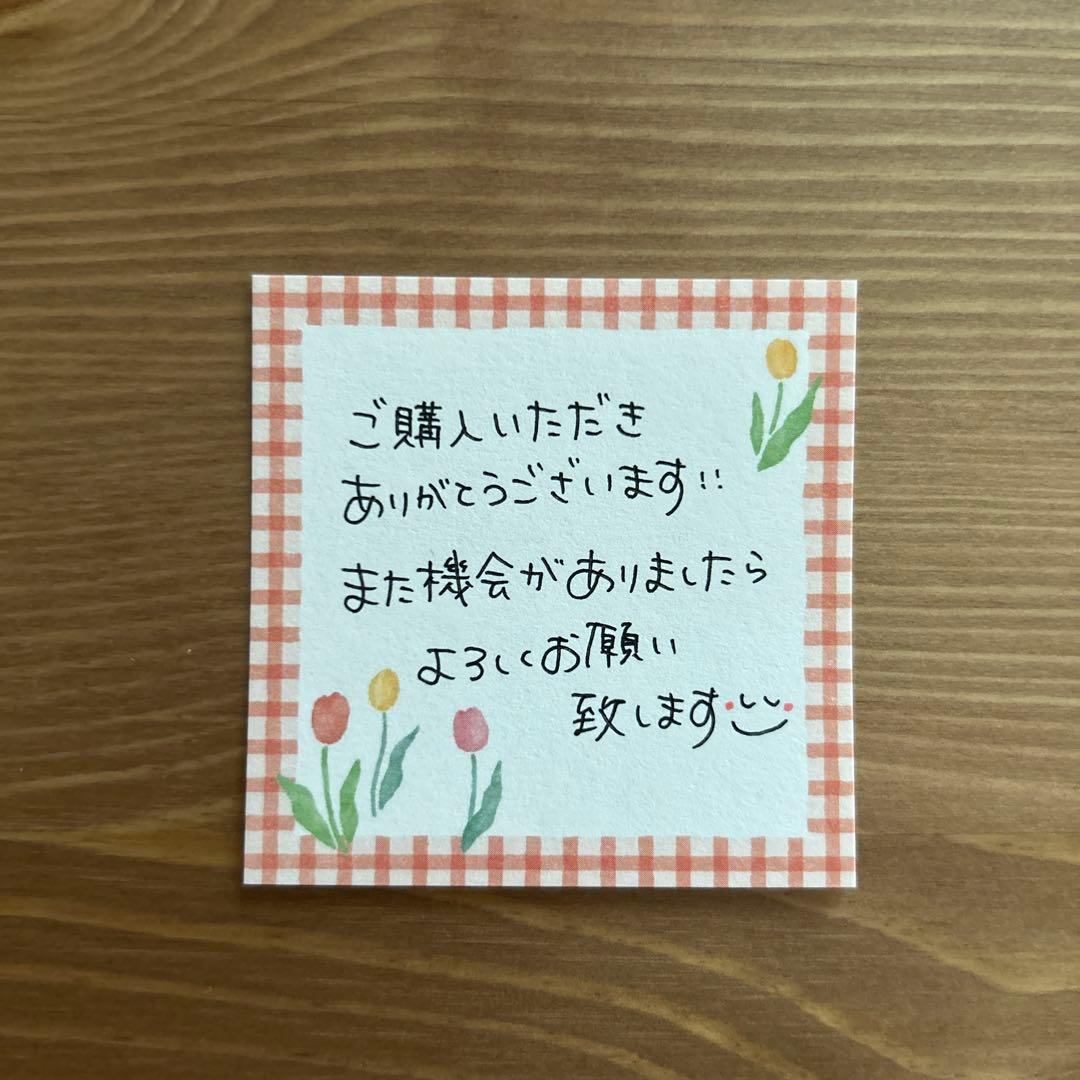 ご購入いただき
ありがとうございます!!
また機会がありましたら
よろしくお願い
致します